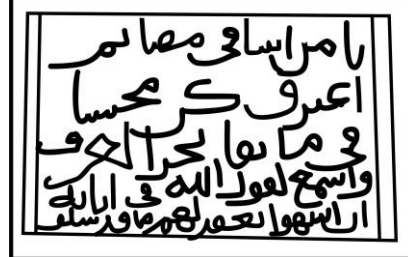 يا من اسا في مضا ثم
اعترف كن محسنا
في ما بقا تجزا الغرف
واسمع لقول الله في اياته
ان ينتهوا يغفر لهم ما قد سلف